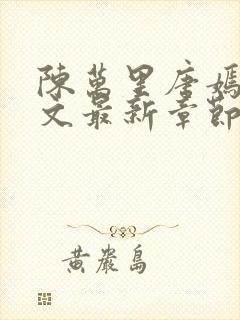 陳萬里唐嫣
文最新章節
黃巖島